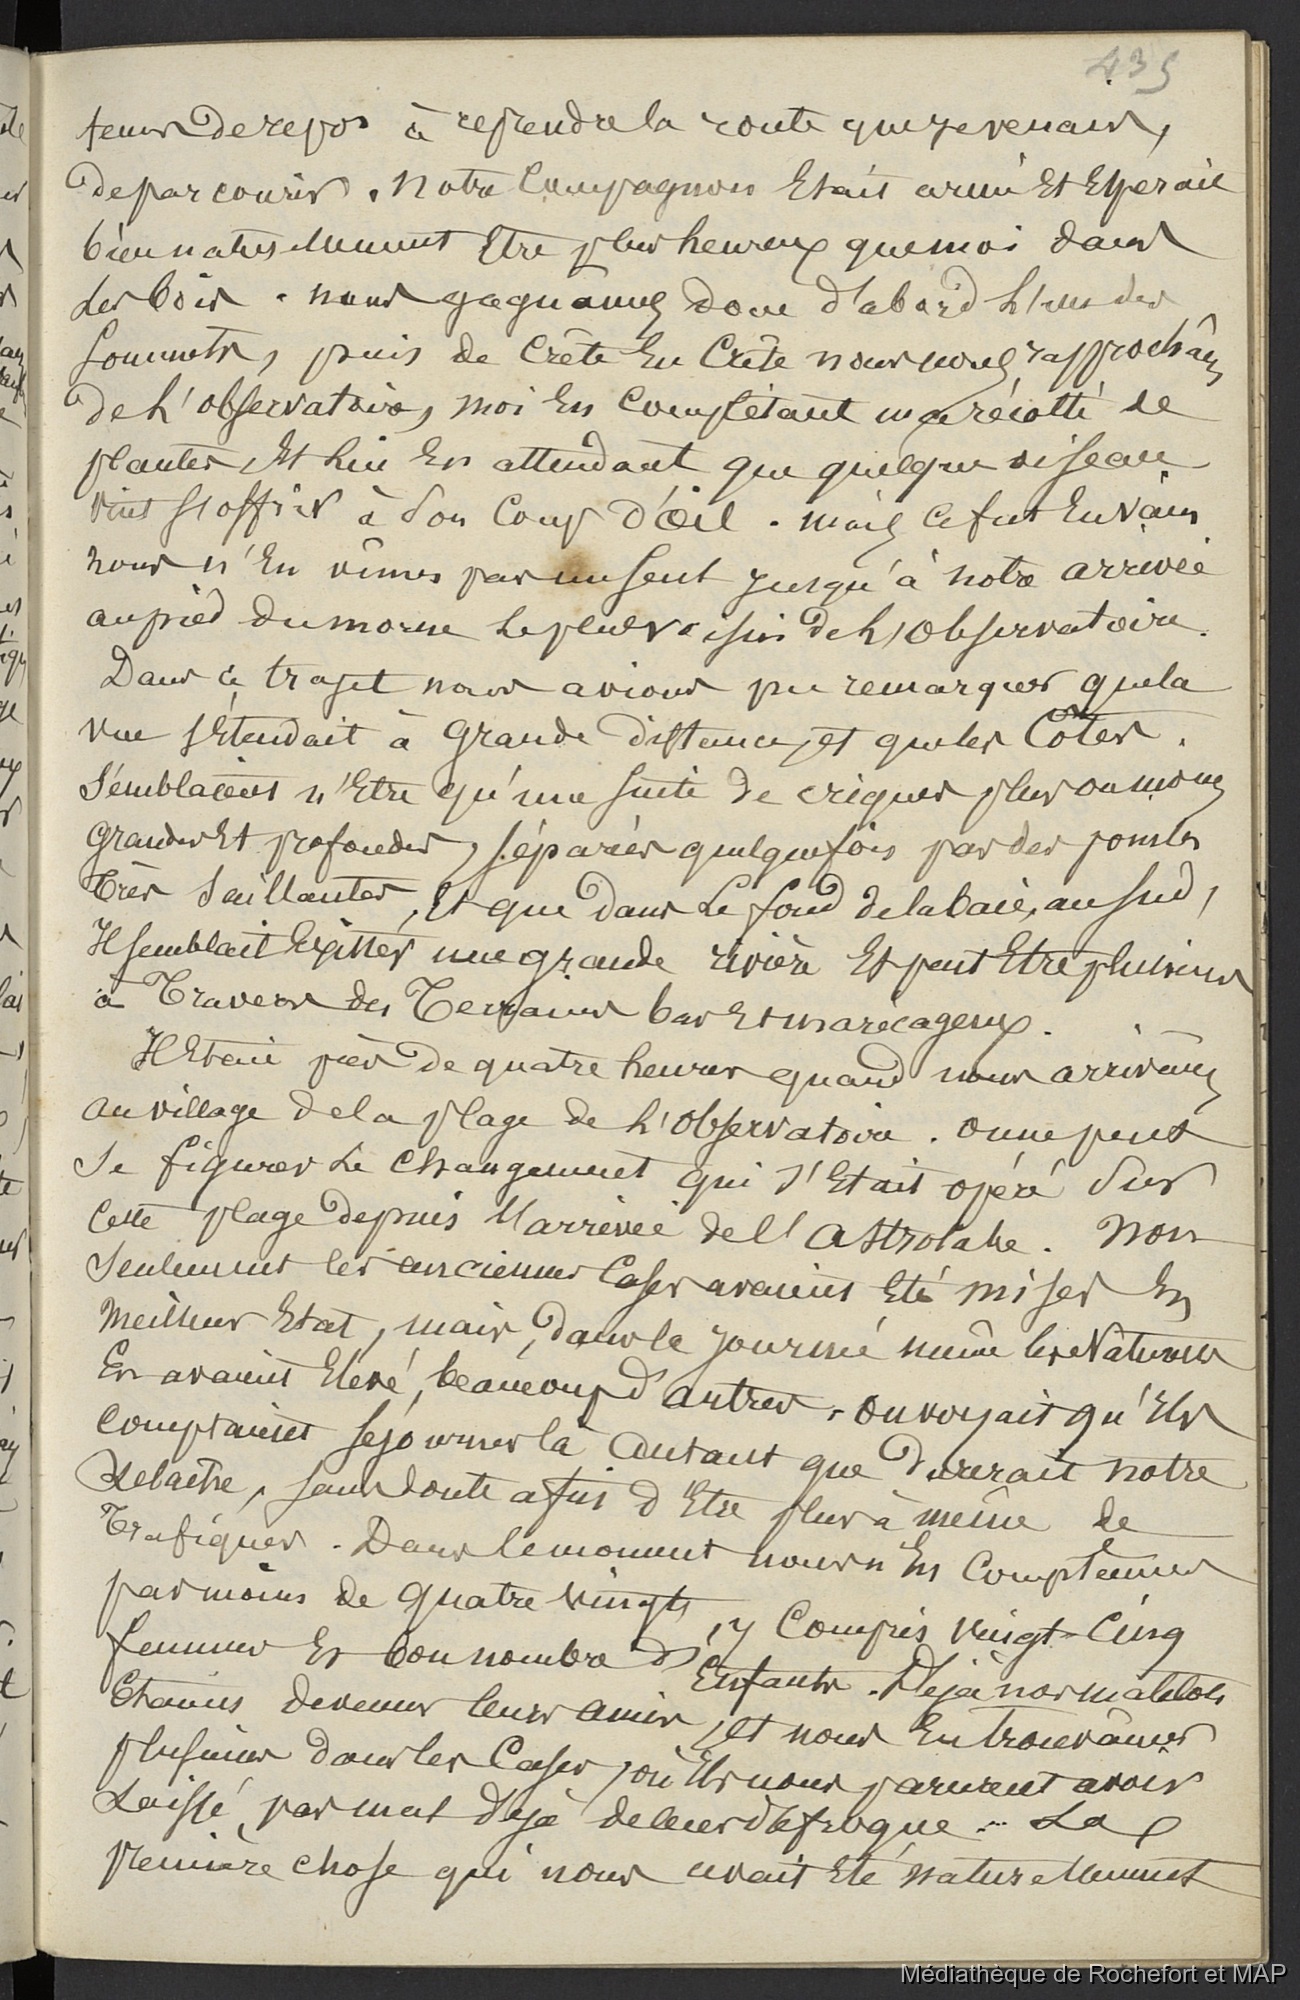 435
tems de repos à reprendre la route que je venais,
de parcourir. Notre Compagnon Etait armé Et Espérait
bien naturellement Etre plus heureux que moi dans
les bois. nous gagnâmes donc d'abord l'un des
Sommets, puis de Crête En Crête nous nous rapprochâmes
de l'observatoire, moi En complétant ma récolte de
plantes, Et lui En attendant que quelque oiseau
vint s'offrir à son coup d'Œil. mais ce fut En vain
nous n'En vîmes pas un seul jusqu'à notre arrivée
au pied du morne le plus voisin de l'Observatoire.
Dans ce trajet nous avions pu remarquer que la
vue s'Etendait à Grande distance, et que les Côtes.
Semblaient n'Etre qu'une suite de criques plus ou moins
Grandes Et profondes, séparées quelquefois par des pointes
très saillantes, Et que dans le fond de la baie, au sud,
Il semblait Exister une grande rivière Et peut Etre plusieurs
à Travers des Terrains bas Et marécageux.
Il Etait près de quatre heures quand nous arrivâmes
au village de la plage de l'Observatoire. on ne peut
se figurer le changement qui s'Etait opéré sur
cette plage depuis l'arrivée de l'Astrolabe. Non
seulement les anciennes Cases avaient Eté mises En
meilleur Etat, mais, dans la journée même les Naturels
En avaient Elevé, beaucoup d'autres. on voyait qu'Ils
comptaient séjourner là autant que durerait notre
Relache, sans doute afin d'Etre plus à même de
Trafiquer. Dans le moment nous n'En comptâmes
pas moins de quatre vingts, y compris vingt-cinq
femmes Et bon nombre d'Enfants. Déjà nos matelots
Etaient devenus leurs amis, et nous En trouvâmes
plusieurs dans les Cases, où Ils nous parurent avoir
Laissé, pas mal déjà de leur défroque... La
première chose qui nous avait Eté naturellement
Médiathèque de Rochefort et MAP